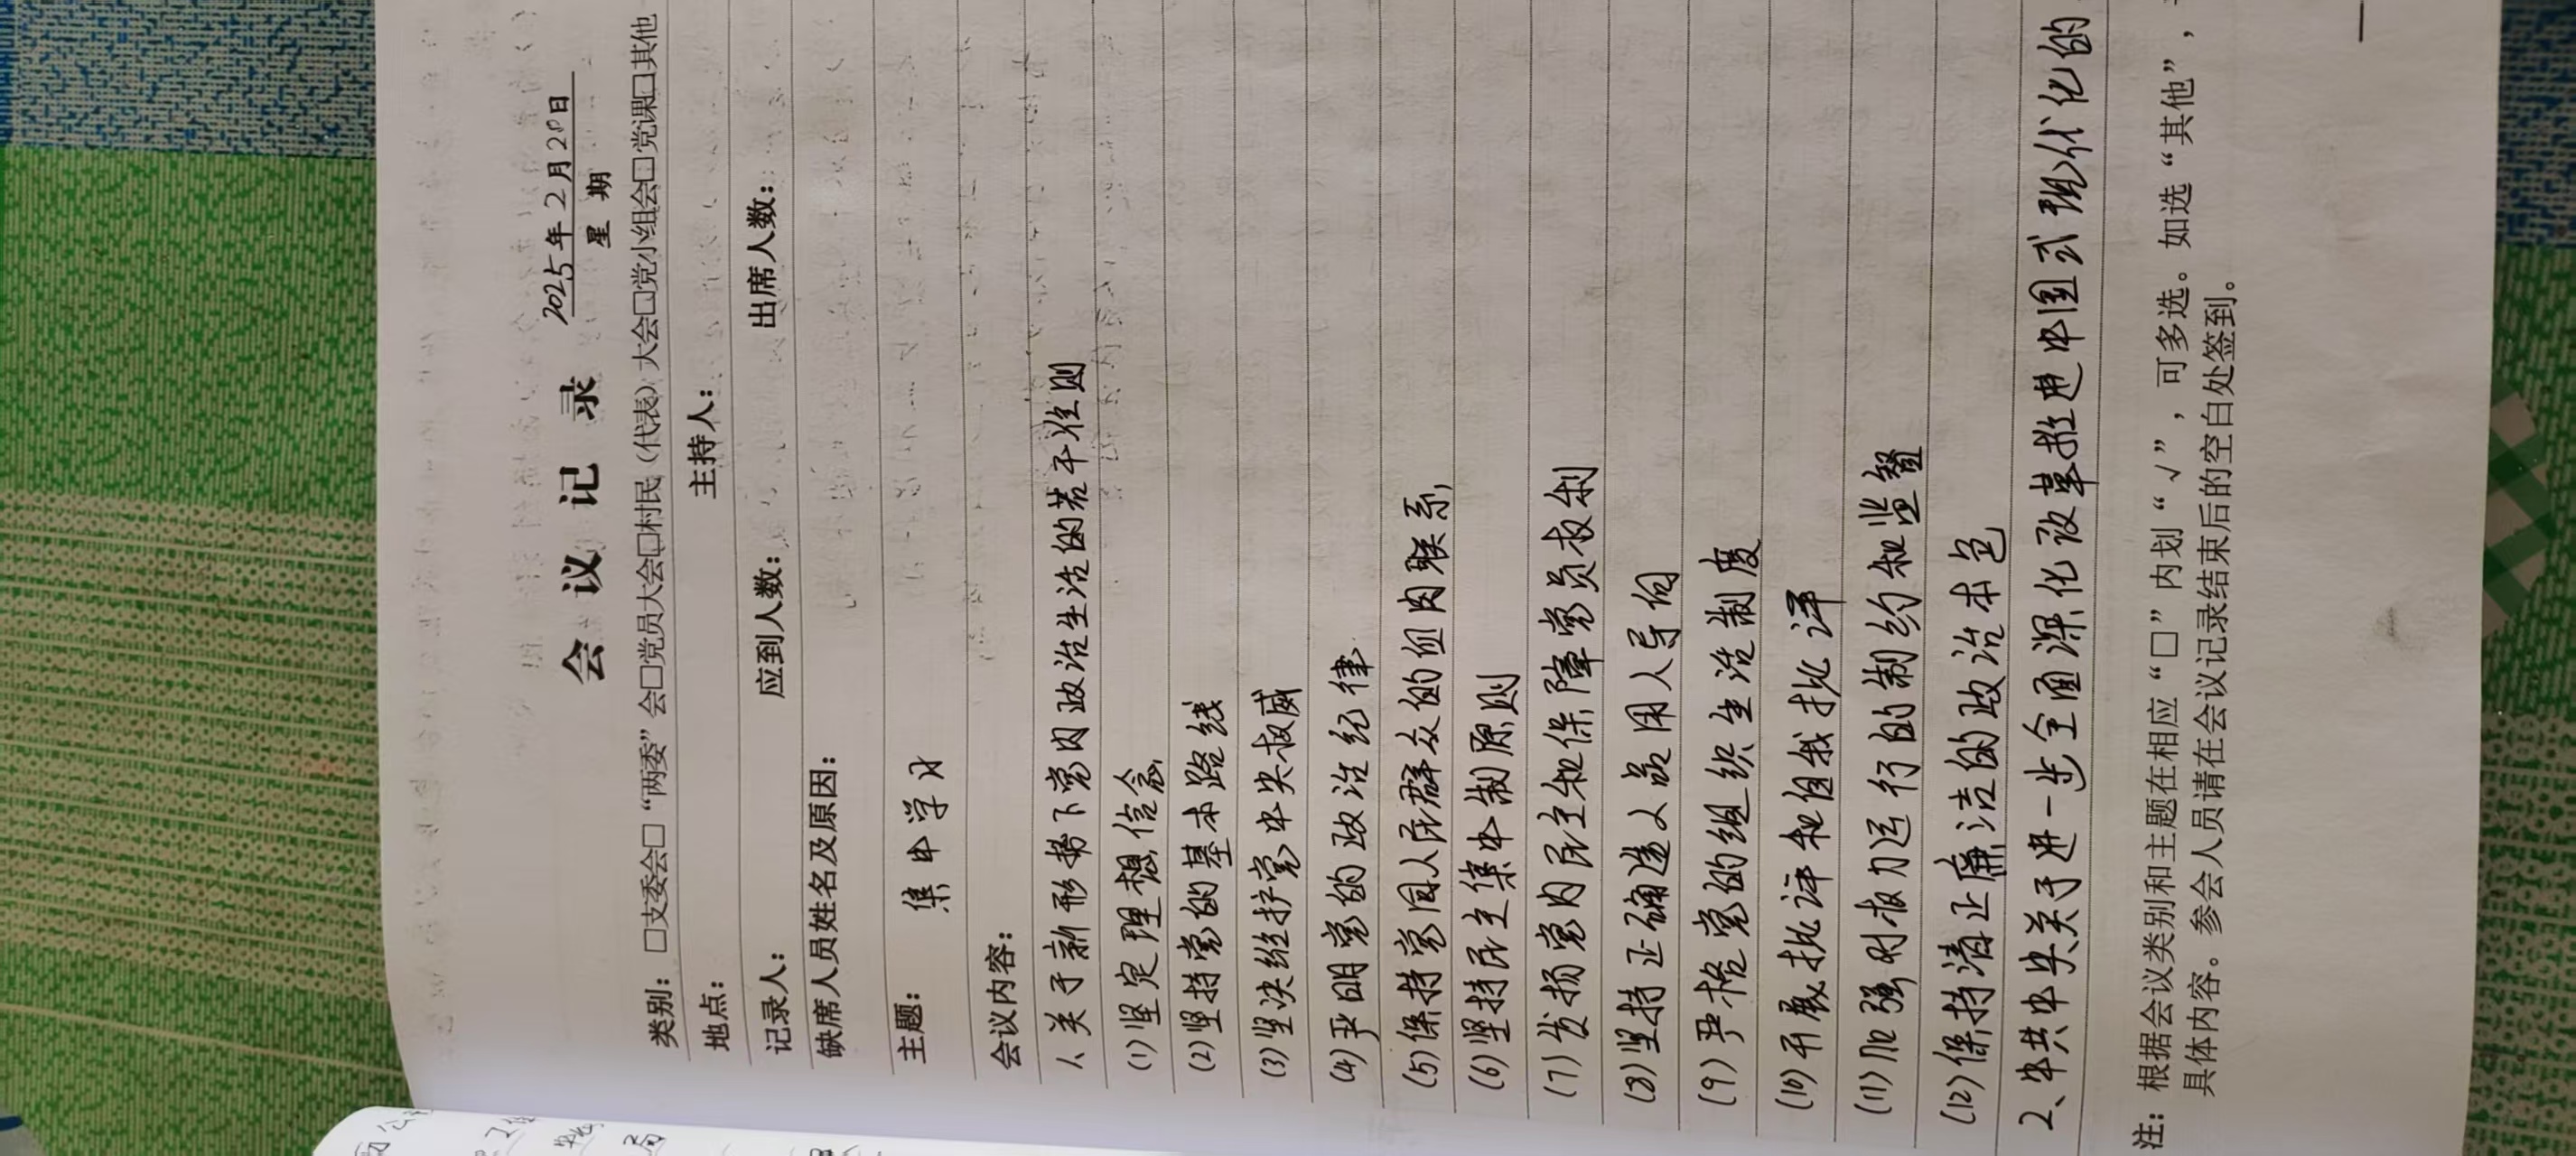 会 议 记 录
2025年2月20日
星 期
类别：□支委会□“两委”会□党员大会□村民（代表）大会□党小组会□党课□其他
地点： 主持人：
记录人： 应到人数： 出席人数：
缺席人员姓名及原因：
主题： 集中学习
会议内容：
1、关于新形势下党内政治生活的若干准则
(1)坚定理想信念
(2)坚持党的基本路线
(3)坚决维护党中央权威
(4)严明党的政治纪律
(5)保持党同人民群众的血肉联系
(6)坚持民主集中制原则
(7)发扬党内民主和保障党员权利
(8)坚持正确选人用人导向
(9)严格党的组织生活制度
(10)开展批评和自我批评
(11)加强对权力运行的制约和监督
(12)保持清正廉洁的政治本色
2、中共中央关于进一步全面深化改革推进中国式现代化的
注：根据会议类别和主题在相应“□”内划“√”，可多选。如选“其他”，
具体内容。参会人员请在会议记录结束后的空白处签到。